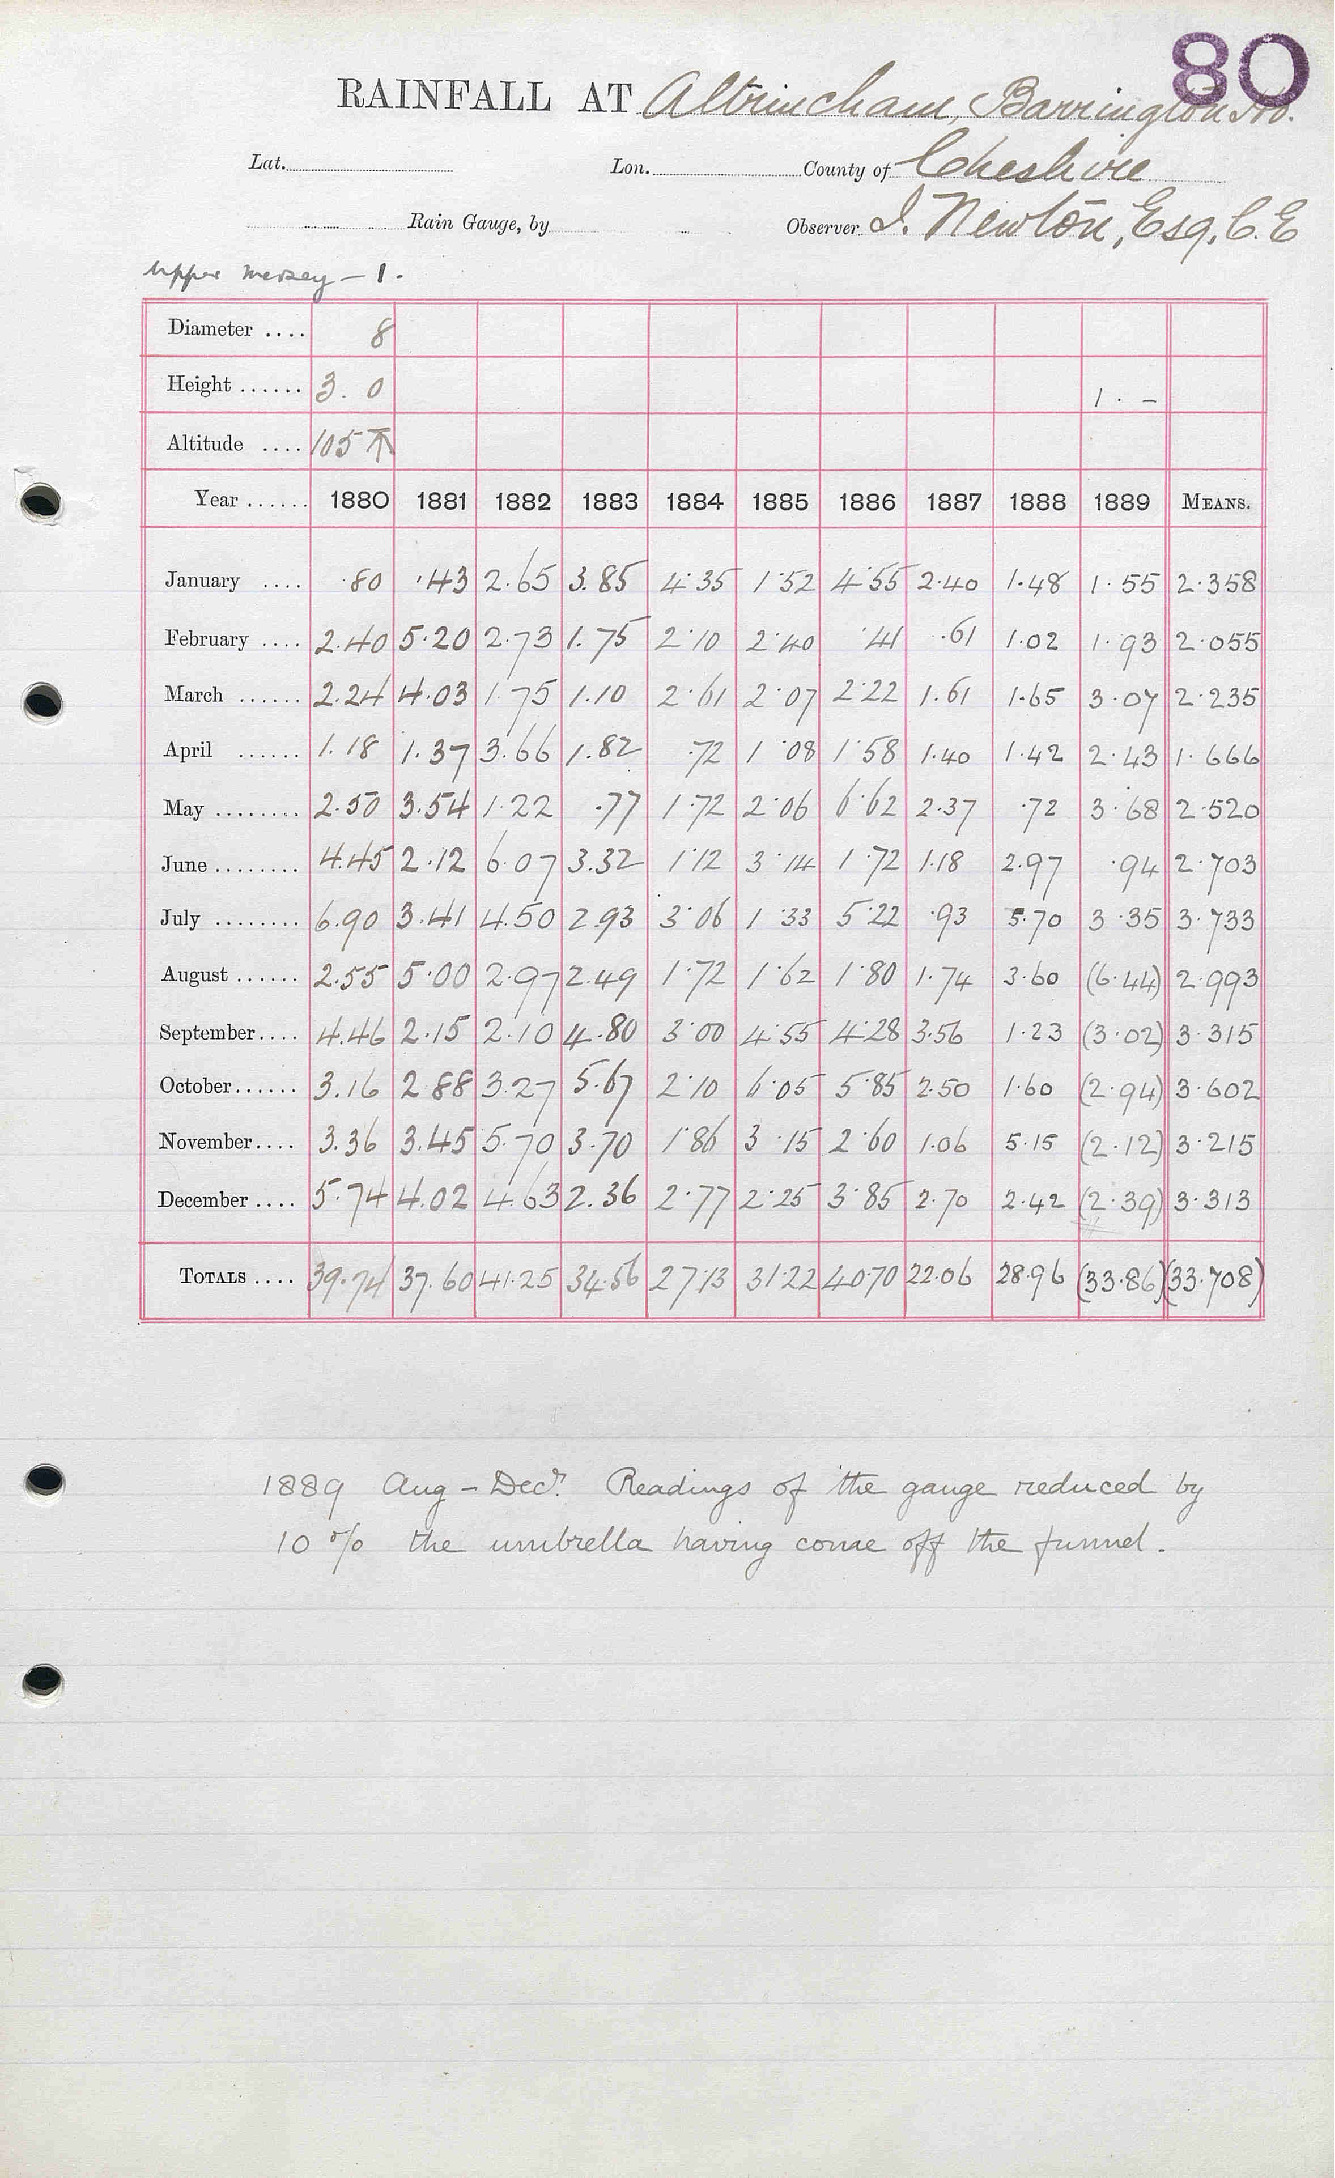 80
RAINFALL AT Altrincham, Barrington Ho.
Lat. Lon. County of Cheshire
Rain Gauge, by Observer I. Newton, Esq, C.E
Upper Mersey – 1.
Diameter .... 8
Height ...... 3. 0 1. –
Altitude .... 105
Year ...... 1880 1881 1882 1883 1884 1885 1886 1887 1888 1889 MEANS.
January .... .80 .43 2.65 3.85 4.35 1.52 4.55 2.40 1.48 1.55 2.358
February .... 2.40 5.20 2.73 1.75 2.10 2.40 .41 .61 1.02 1.93 2.055
March ...... 2.24 4.03 1.75 1.10 2.61 2.07 2.22 1.61 1.65 3.07 2.235
April ...... 1.18 1.37 3.66 1.82 .72 1.08 1.58 1.40 1.42 2.43 1.666
May ........ 2.50 3.54 1.22 .77 1.72 2.06 6.62 2.37 .72 3.68 2.520
June ........ 4.45 2.12 6.07 3.32 1.12 3.14 1.72 1.18 2.97 .94 2.703
July ........ 6.90 3.41 4.50 2.93 3.06 1.33 5.22 .93 5.70 3.35 3.733
August ...... 2.55 5.00 2.97 2.49 1.72 1.62 1.80 1.74 3.60 (6.44) 2.993
September.... 4.46 2.15 2.10 4.80 3.00 4.55 4.28 3.56 1.23 (3.02) 3.315
October...... 3.16 2.88 3.27 5.67 2.10 6.05 5.85 2.50 1.60 (2.94) 3.602
November.... 3.36 3.45 5.70 3.70 1.86 3.15 2.60 1.06 5.15 (2.12) 3.215
December .... 5.74 4.02 4.63 2.36 2.77 2.25 3.85 2.70 2.42 (2.39) 3.313
TOTALS .... 39.74 37.60 41.25 34.56 27.13 31.22 40.70 22.06 28.96 (33.86) (33.708)
1889 Aug – Decr. Readings of the gauge reduced by
10 % the umbrella having come off the funnel.